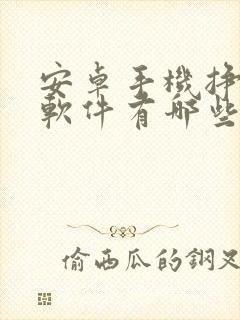 安卓手機掙
軟件有哪些
偷西瓜的鋼叉